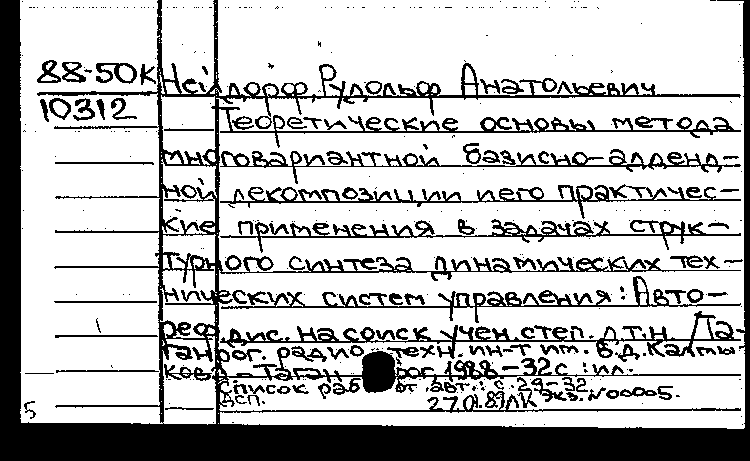 88-50К Нейдорф, Рудольф Анатольевич
10312 Теоретические основы метода
многовариантной базисно-адденд-
ной декомпозиции и его практичес-
кие применения в задачах струк-
турного синтеза динамических тех-
нических систем управления: Авто-
реф. дис. на соиск учен. степ. д.т.н. /Та-
ганрог. радио-техн. ин-т им. В.Д. Калмы-
кова - Таган рог 1988 - 32с : ил.
Список раб от авт.: с. 29-32
ДСП. экз. N 00005.
5 27.01.89 ЛК